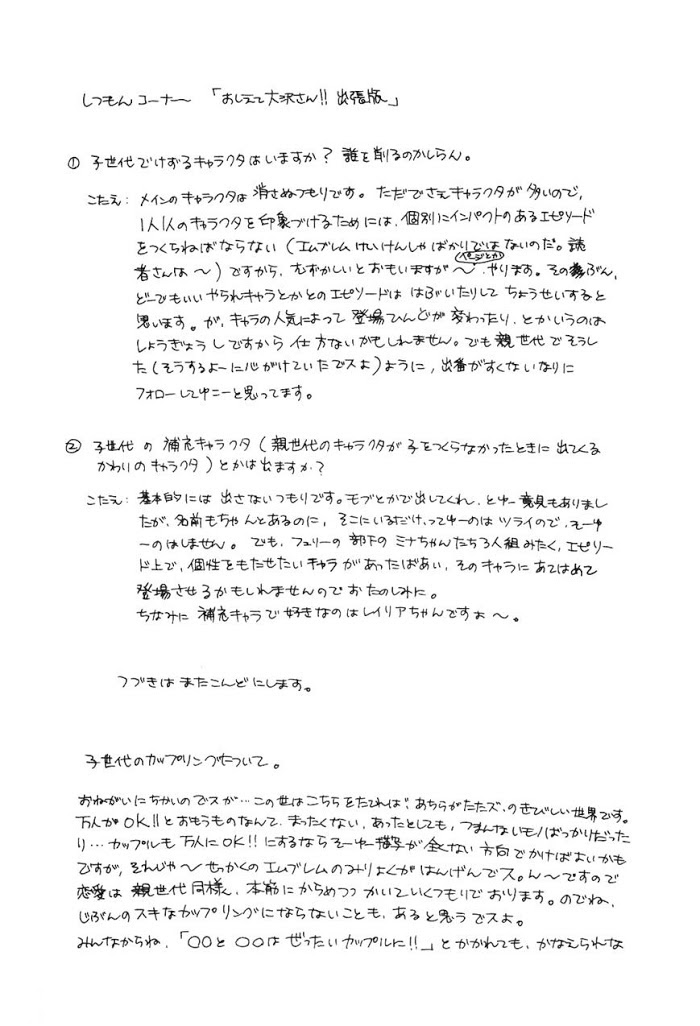 しつもんコーナー 「おしえて大沢さん!! 出張版」
① 子世代でけずるキャラクタはいますか? 誰を削るのかしらん。
こたえ: メインのキャラクタは消さぬつもりです。ただでさえキャラクタが多いので、
1人1人のキャラクタを印象づけるためには、個別にインパクトのあるエピソード
をつくらねばならない(エムブレムけいけんしゃばかりではないのだ。読
者さんは〜)ですから、むずかしいとおもいますが〜 やります。そのぶん、
どーでもいいやられキャラとかとのエピソードははぶいたりしてちょうせいすると
思います。が、キャラの人気によって登場ひんどが変わったり、とかいうのは
しょうぎょうしですから仕方ないかもしれません。でも親世代でそうし
た(そうするよーに心がけていたでスよ)ように、出番がすくないなりに
フォローしてゆこーと思ってます。
② 子世代の補充キャラクタ(親世代のキャラクタが子をつくらなかったときに出てくる
かわりのキャラクタ)とかは出ますか?
こたえ: 基本的には出さないつもりです。モブとかで出してくれ、とゆー意見もありまし
たが、名前もちゃんとあるのに、そこにいるだけ、ってゆーのはツライので、そーゆ
ーのはしません。でも、フュリーの部下のミナちゃんたち3人組みたく、エピソー
ド上で、個性をもたせたいキャラがあったばあい、そのキャラにあてはめて
登場させるかもしれませんのでおたのしみに。
ちなみに補充キャラで好きなのはレイリアちゃんですよ〜。
つづきはまたこんどにします。
子世代のカップリングについて。
おねがいにちかいのでスが…この世はこちらをたてれば、あちらがたたズ、のきびしい世界です。
万人がOK!!とおもうものなんて、まったくない、あったとしても、つまんないモノばっかりだった
り…カップルも万人にOK!!にするならそーゆー描写が全くない方向でかけばよいかも
ですが、それじゃ〜せっかくのエムブレムのみりょくがはんげんでスo ん〜ですので
恋愛は親世代同様、本筋にからめつつかいていくつもりでおります。のでね、
じぶんのスキなカップリングにならないことも、あると思うでスよ。
みんなからね、「○○と○○はぜったいカップルに!!」とかかれても、かなえられな